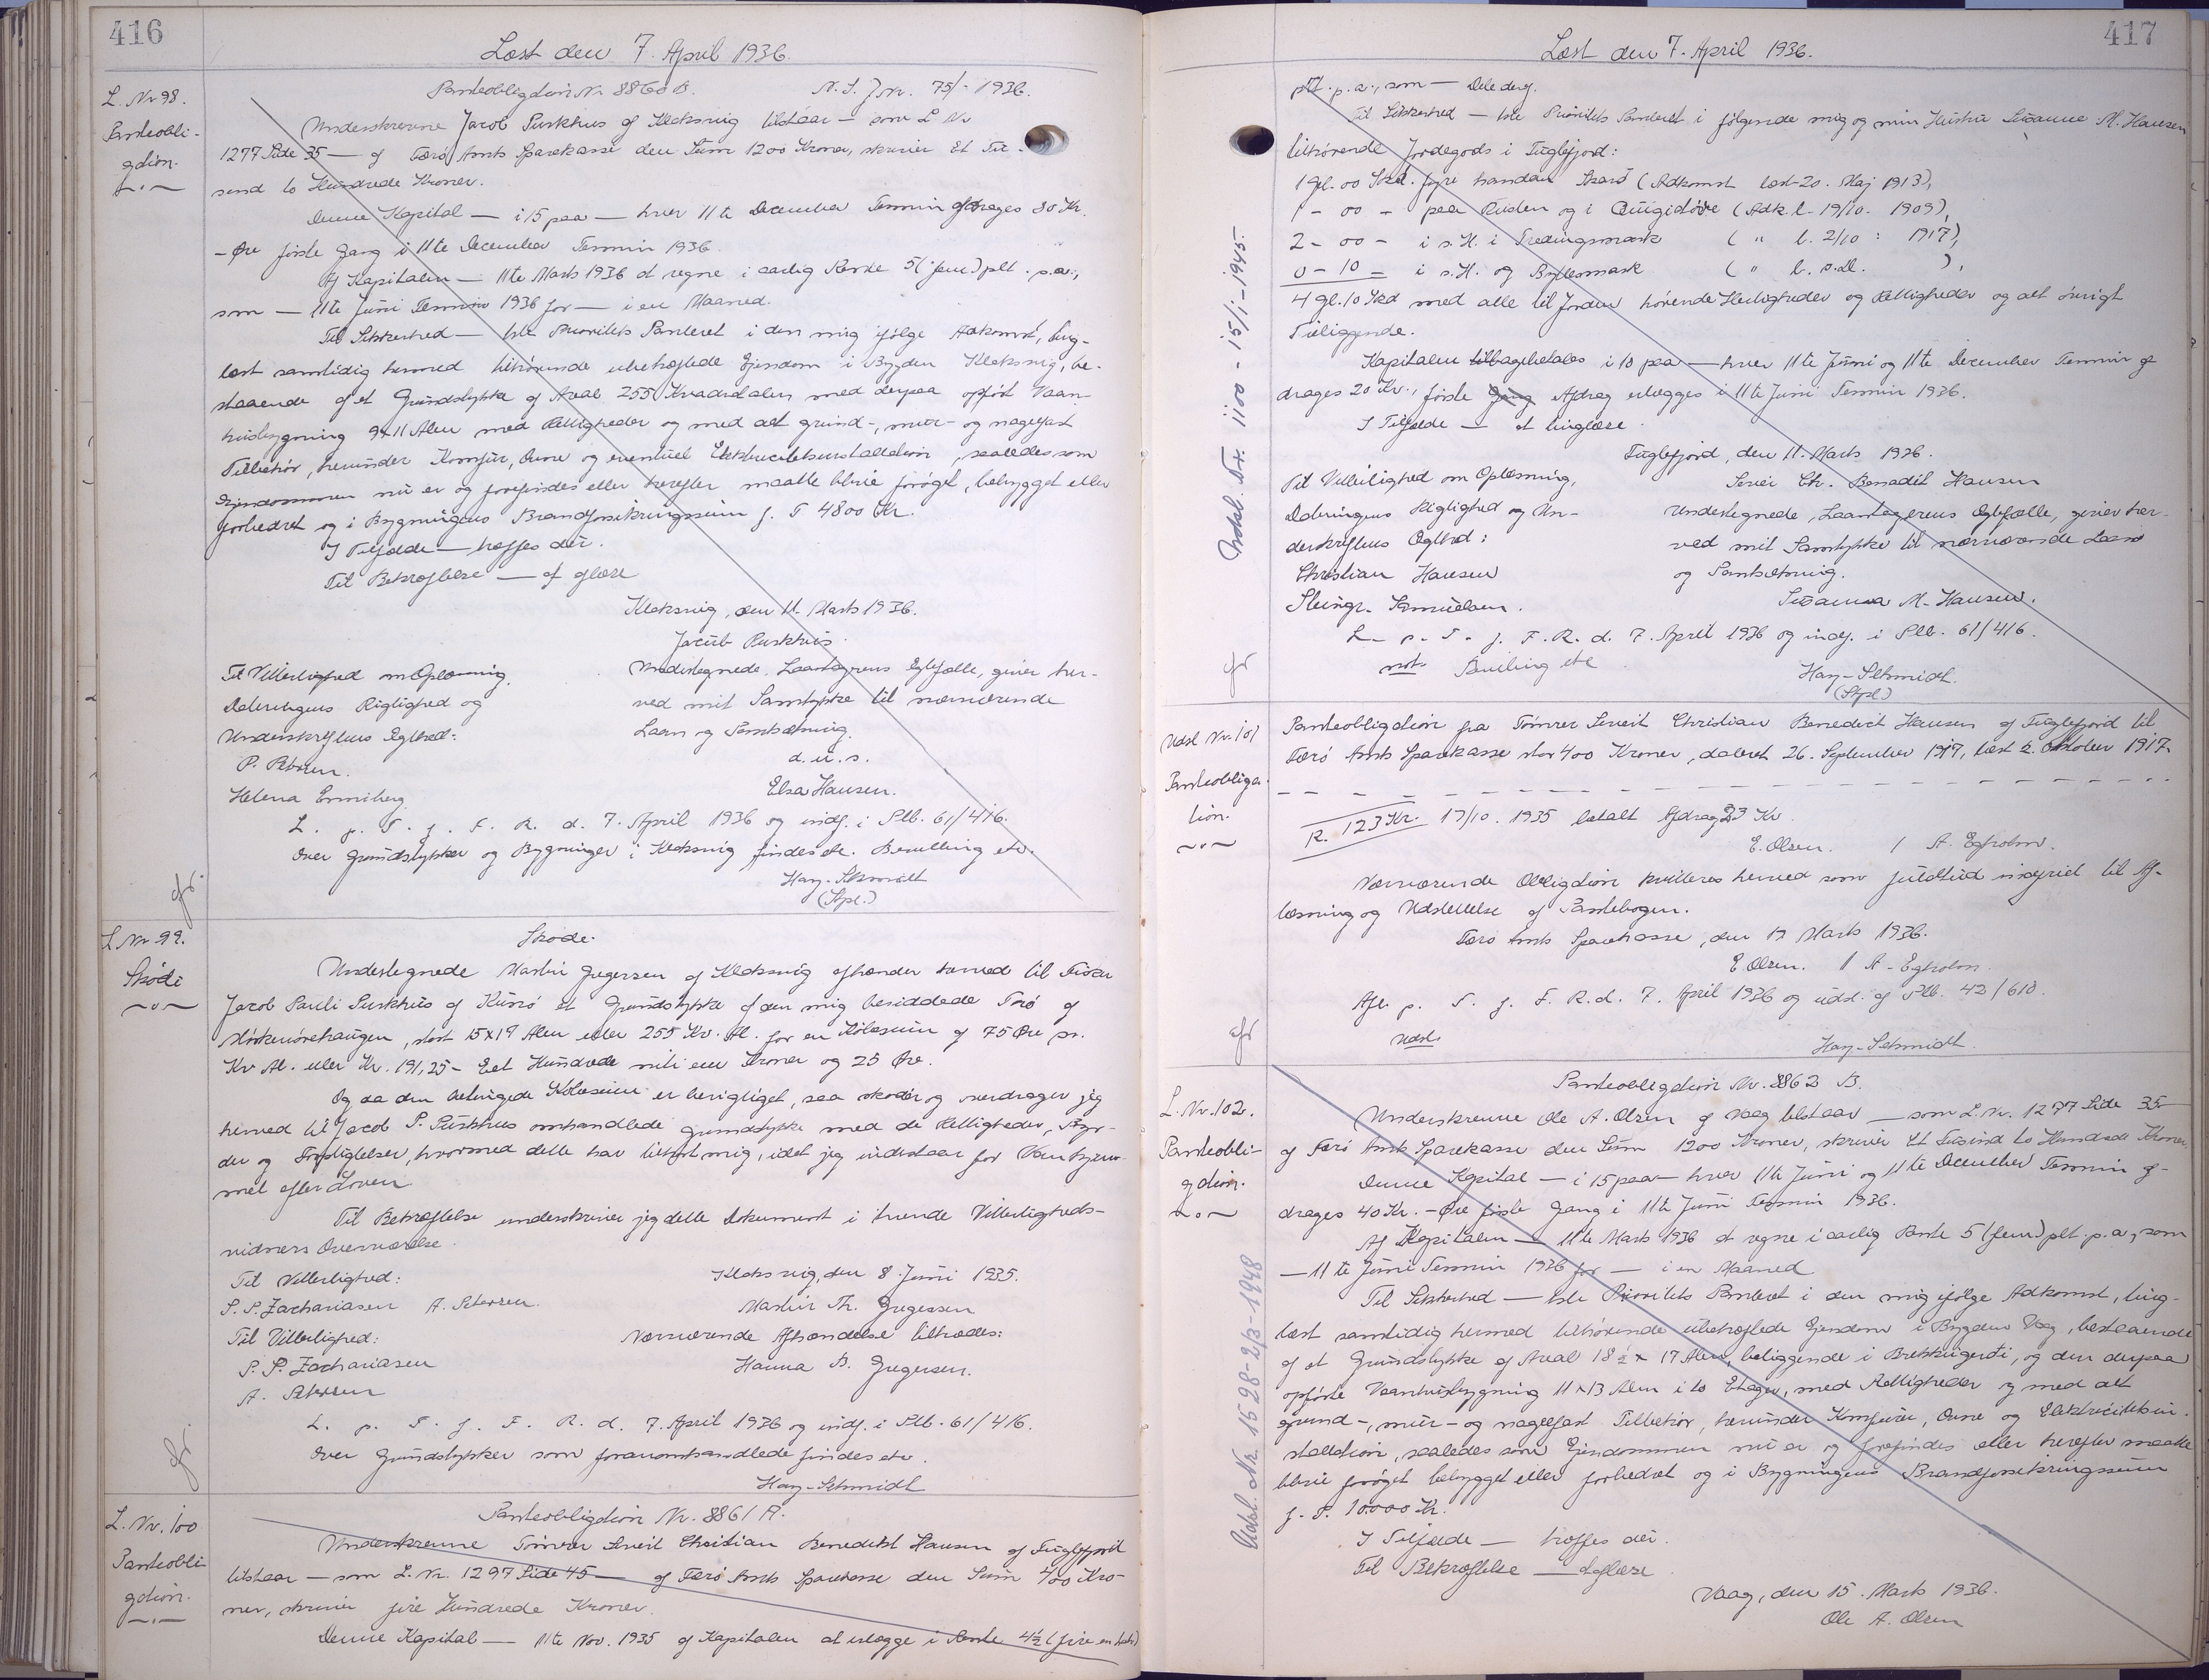 416
Læst den 7. April 1936.
L. Nr 98.
Panteobli-
gation.
Panteobligation Nr. 8860 B. N. S. J Nr. 75/- 1936.
Underskrevne Jacob Purkhús af Klaksvig tilstaar — som L Nr
1277 Side 35 — af Færö Amts Sparekasse den Sum 1200 Kroner, skriver Et Tu-
send to Hundrede Kroner.
Denne Kapital — i 15 paa — hver 11te December Termin afdrages 80 Kr.
- Øre förste Gang i 11te December Termin 1936.
Af Kapitalen — 11te Marts 1936 at regne i aarlig Rente 5 (fem) pCt. p.a.,
som — 11te Juni Termin 1936 for — i en Maaned.
Til Sikkerhed — 1ste Prioritets Panteret i den mig ifölge Adkomst, ting-
læst samtidig hermed tilhörende ubehæftede Ejendom i Bygden Klaksvig, be-
staaende af et Grundstykke af Areal 255 Kvadratalen med derpaa opfört Vaan-
husbygning 9x11 Alen med Rettigheder og med alt grund-, mur- og nagelfast
Tilbehör, herunder Komfur, Ovne og eventuel Elektricitetsinstallation, saaledes som
Ejendommen nu er og forefindes eller herefter maatte blive foröget, bebygget eller
forbedret og i Bygningens Brandforsikringssum f. T. 4800 Kr.
I Tilfælde — træffes der.
Til Bekræftelse — aflæse
Klaksvig, den 11. Marts 1936.
Jacob Purkhús.
Til Vitterlighed om Oplæsning, Undertegnede, Laantagerens Egtefælle, giver her-
Dateringens Rigtighed og ved mit Samtykke til nærværende
Underskriftens Egthed: Laan og Pantsætning.
P. Petersen. d. u. s.
Helena Enniberg. Elsa Hansen.
L. p. T. f. F. R. d. 7. April 1936 og indf. i Ptb. 61/416.
Over Grundstykker og Bygninger i Klaksvig findes etc. Bevilling etc.
Hay-Schmidt
(Stpl.)
L Nr 99.
Sköde
Sköde.
Undertegnede Martin Gregersen af Klaksvig afhænder hermed til Fisker
Jacob Pauli Purkhús af Kunö et Grundstykke af den mig besiddede Trö
, stort 15x17 Alen eller 255 Kv. Al. for en Köbesum af 75 Øre pr.
Kv Al. eller Kr. 191,25 - Eet Hundrede niti een Kroner og 25 Øre.
Og da den betingede Köbesum er berigtiget, saa sköder og overdrager jeg
hermed til Jacob P. Purkhús omhandlede Grundstykke med de Rettigheder, Byr-
der og Forpligtelser, hvormed dette har tilhört mig, idet jeg indestaar for Vanhjem-
mel efter Loven.
Til Bekræftelse underskriver jeg dette Dokument i tvende Vitterligheds-
vidners Overværelse.
Til Vitterlighed: Klaksvig, den 8. Juni 1935.
P. P. Zachariasen A. Petersen. Martin Th. Gregersen
Til Vitterlighed: Nærværende Afhændelse tiltrædes:
P. P. Zachariasen Hanna B. Gregersen.
A. Petersen
L. p. T. f. F. R. d. 7. April 1936 og indf. i Ptb. 61/416.
Over Grundstykker som foranomhandlede findes etc.
Hay-Schmidt
L. Nr. 100
Panteobli-
gation.
Panteobligation Nr. 8861 A.
Underskrevne Tömrer Christian Benedikt Hansen af Fuglefjord
tilstaar — som L. Nr. 1297 Side 45 — af Færö Amts Sparekasse den Sum 400 Kro-
ner, skriver fire Hundrede Kroner.
Denne Kapital — 11te Nov. 1935 af Kapitalen at erlægge i Rente 4½ (fire en halv)
417
Læst den 7. April 1936.
pCt. p.a., som — Dele deraf.
Til Sikkerhed — 1ste Prioritets Panteret i fölgende mig og min Hustru Susanne M. Hansen
tilhörende Jordegods i Fuglefjord:
1 gl. 00 Skd. fyri handan Skarð (Adkomst læst 20. Maj 1913),
1 - 00 - paa Rusten og i (Adk. l. 19/10. 1909),
2 - 00 - i s. H. i Tredingsmark ( " l. 2/10 : 1917),
0 - 10 - i s. H. og Byllesmark ( " l. s.D. ),
4 gl. 10 Skd med alle til Jorden hörende Herligheder og Rettigheder og alt övrigt
Tilliggende.
Kapitalen tilbagebetales i 10 paa — hver 11te Juni og 11te December Termin af-
drages 20 Kr., förste Gang Afdrag erlægges i 11te Juni Termin 1936.
I Tilfælde — at tinglæse.
Fuglefjord, den 11. Marts 1936.
Til Vitterlighed om Oplæsning, Chr. Benadit Hansen
Dateringens Rigtighed og Un- Undertegnede, Laantagerens Egtefælle, giver her-
derskriftens Egthed: ved mit Samtykke til nærværende Laan
Christian Hansen og Pantsætning.
Steingr. Samuelsen. Susanna M. Hansen.
L. p. T. f. F. R. d. 7. April 1936 og indf. i Ptb. 61/416.
not. Bevilling etc. Hay-Schmidt.
(Stpl.)
Udsl. Nr. 1100 - 15/1 - 1945.
Udsl Nr. 101
Panteobliga-
tion.
Panteobligation fra Tömrer Christian Benedict Hansen af Fuglefjord til
Færö Amts Sparekasse stor 400 Kroner, dateret 26. September 1917, læst 2. Oktober 1917.
R. 123 Kr. 17/10. 1935 betalt Afdrag 23 Kr.
E. Olsen. / A. Egholm.
Nærværende Obligation kvitteres herved som fuldtud indfriet til Af-
læsning og Udslettelse af Pantebogen.
Færö Amts Sparekasse, den 17 Marts 1936.
E. Olsen. / A. Egholm.
Afl. p. T. f. F. R. d. 7. April 1936 og udsl. af Ptb. 42/618.
Udsl. Hay-Schmidt.
L. Nr. 102.
Panteobli-
gation.
Panteobligation Nr. 8862 B.
Underskrevne Ole A. Olsen af Vaag tilstaar — som L. Nr. 1277 Side 35
af Færö Amts Sparekasse den Sum 1200 Kroner, skriver Et Tusind to Hundrede Kroner.
Denne Kapital — i 15 paa — hver 11te Juni og 11te December Termin af-
drages 40 Kr. - Øre förste Gang i 11te Juni Termin 1936.
Af Kapitalen — 11te Marts 1936 at regne i aarlig Rente 5 (fem) pCt. p.a., som
— 11te Juni Termin 1936 for — i en Maaned
Til Sikkerhed — 1ste Prioritets Panteret i den mig ifölge Adkomst, ting-
læst samtidig hermed tilhörende ubehæftede Ejendom i Bygden Vaag, bestaaende
af et Grundstykke af Areal 18½ x 17 Alen, beliggende i Brekkugerði, og den derpaa
opförte Vaanhusbygning 11x13 Alen i to Etager, med Rettigheder og med alt
grund-, mur- og nagelfast Tilbehör, herunder Komfurer, Ovne og Elektricitetsin-
stallation, saaledes som Ejendommen nu er og forefindes eller herefter maatte
blive foröget bebygget eller forbedret og i Bygningens Brandforsikringssum
f. T. 10.000 Kr.
I Tilfælde — træffes der.
Til Bekræftelse — aflæse
Vaag, den 15. Marts 1936.
Ole A. Olsen
Udsl. Nr. 1528 - 2/3 - 1948